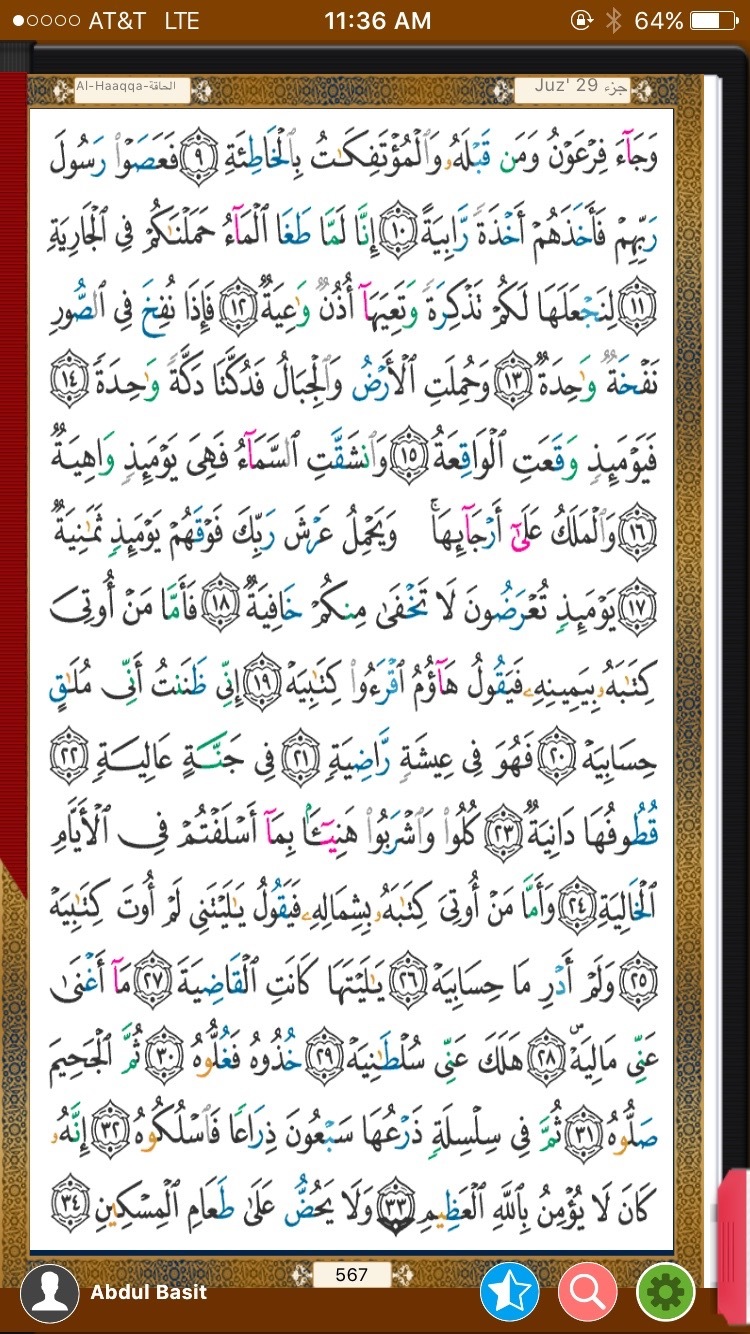 AT&T LTE 11:36 AM 64%
Al-Haaqqa-الحاقة Juz' 29 جزء
وَجَآءَ فِرۡعَوۡنُ وَمَن قَبۡلَهُۥ وَٱلۡمُؤۡتَفِكَٰتُ بِٱلۡخَاطِئَةِ ٩ فَعَصَوۡاْ رَسُولَ
رَبِّهِمۡ فَأَخَذَهُمۡ أَخۡذَةٗ رَّابِيَةً ١٠ إِنَّا لَمَّا طَغَا ٱلۡمَآءُ حَمَلۡنَٰكُمۡ فِي ٱلۡجَارِيَةِ
١١ لِنَجۡعَلَهَا لَكُمۡ تَذۡكِرَةٗ وَتَعِيَهَآ أُذُنٞ وَٰعِيَةٞ ١٢ فَإِذَا نُفِخَ فِي ٱلصُّورِ
نَفۡخَةٞ وَٰحِدَةٞ ١٣ وَحُمِلَتِ ٱلۡأَرۡضُ وَٱلۡجِبَالُ فَدُكَّتَا دَكَّةٗ وَٰحِدَةٗ ١٤
فَيَوۡمَئِذٖ وَقَعَتِ ٱلۡوَاقِعَةُ ١٥ وَٱنشَقَّتِ ٱلسَّمَآءُ فَهِيَ يَوۡمَئِذٖ وَاهِيَةٞ
١٦ وَٱلۡمَلَكُ عَلَىٰٓ أَرۡجَآئِهَاۚ وَيَحۡمِلُ عَرۡشَ رَبِّكَ فَوۡقَهُمۡ يَوۡمَئِذٖ ثَمَٰنِيَةٞ
١٧ يَوۡمَئِذٖ تُعۡرَضُونَ لَا تَخۡفَىٰ مِنكُمۡ خَافِيَةٞ ١٨ فَأَمَّا مَنۡ أُوتِيَ
كِتَٰبَهُۥ بِيَمِينِهِۦ فَيَقُولُ هَآؤُمُ ٱقۡرَءُواْ كِتَٰبِيَهۡ ١٩ إِنِّي ظَنَنتُ أَنِّي مُلَٰقٍ
حِسَابِيَهۡ ٢٠ فَهُوَ فِي عِيشَةٖ رَّاضِيَةٖ ٢١ فِي جَنَّةٍ عَالِيَةٖ ٢٢
قُطُوفُهَا دَانِيَةٞ ٢٣ كُلُواْ وَٱشۡرَبُواْ هَنِيٓـَٔۢا بِمَآ أَسۡلَفۡتُمۡ فِي ٱلۡأَيَّامِ
ٱلۡخَالِيَةِ ٢٤ وَأَمَّا مَنۡ أُوتِيَ كِتَٰبَهُۥ بِشِمَالِهِۦ فَيَقُولُ يَٰلَيۡتَنِي لَمۡ أُوتَ كِتَٰبِيَهۡ
٢٥ وَلَمۡ أَدۡرِ مَا حِسَابِيَهۡ ٢٦ يَٰلَيۡتَهَا كَانَتِ ٱلۡقَاضِيَةَ ٢٧ مَآ أَغۡنَىٰ
عَنِّي مَالِيَهۡۜ ٢٨ هَلَكَ عَنِّي سُلۡطَٰنِيَهۡ ٢٩ خُذُوهُ فَغُلُّوهُ ٣٠ ثُمَّ ٱلۡجَحِيمَ
صَلُّوهُ ٣١ ثُمَّ فِي سِلۡسِلَةٖ ذَرۡعُهَا سَبۡعُونَ ذِرَاعٗا فَٱسۡلُكُوهُ ٣٢ إِنَّهُۥ
كَانَ لَا يُؤۡمِنُ بِٱللَّهِ ٱلۡعَظِيمِ ٣٣ وَلَا يَحُضُّ عَلَىٰ طَعَامِ ٱلۡمِسۡكِينِ ٣٤
567
Abdul Basit